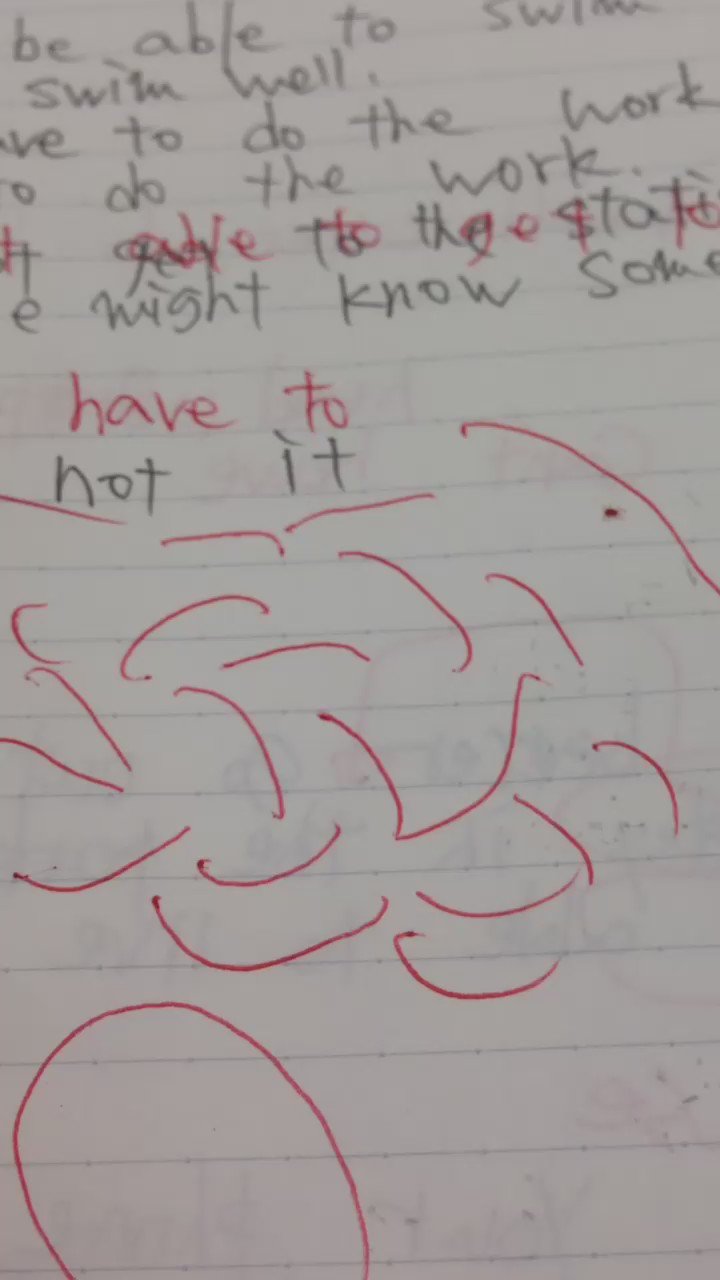 be able to swim
swim well.
ve to do the work
to do the work.
to the stati
e might know some
have to
not it